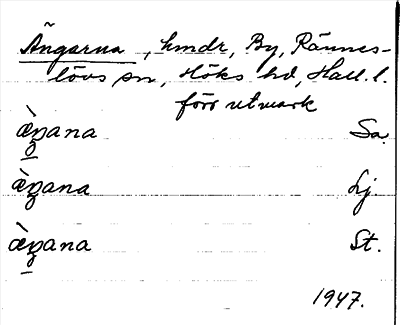 Ängarna, hmdr, By, Rännes-
lövs sn, Höks hd, Hall. l.
förr utmark
æ̀ŋana Sa.
æ̀ŋana Lj
æ̀ŋana St.
1947.